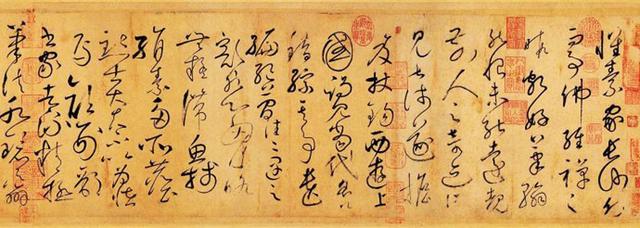 懷素家長沙幼而
事佛經禪之
暇頗好筆翰
然恨未能遠覩
前人之奇迹所
見甚淺遂擔
笈杖錫西遊上
國謁見當代名公
錯綜其事遺
編絕簡往往遇之
豁然心胸略
無疑滯魚牋
絹素多所塵點
士大夫不以為怪
焉顏刑部
書家者流精極
筆法水鏡之辨